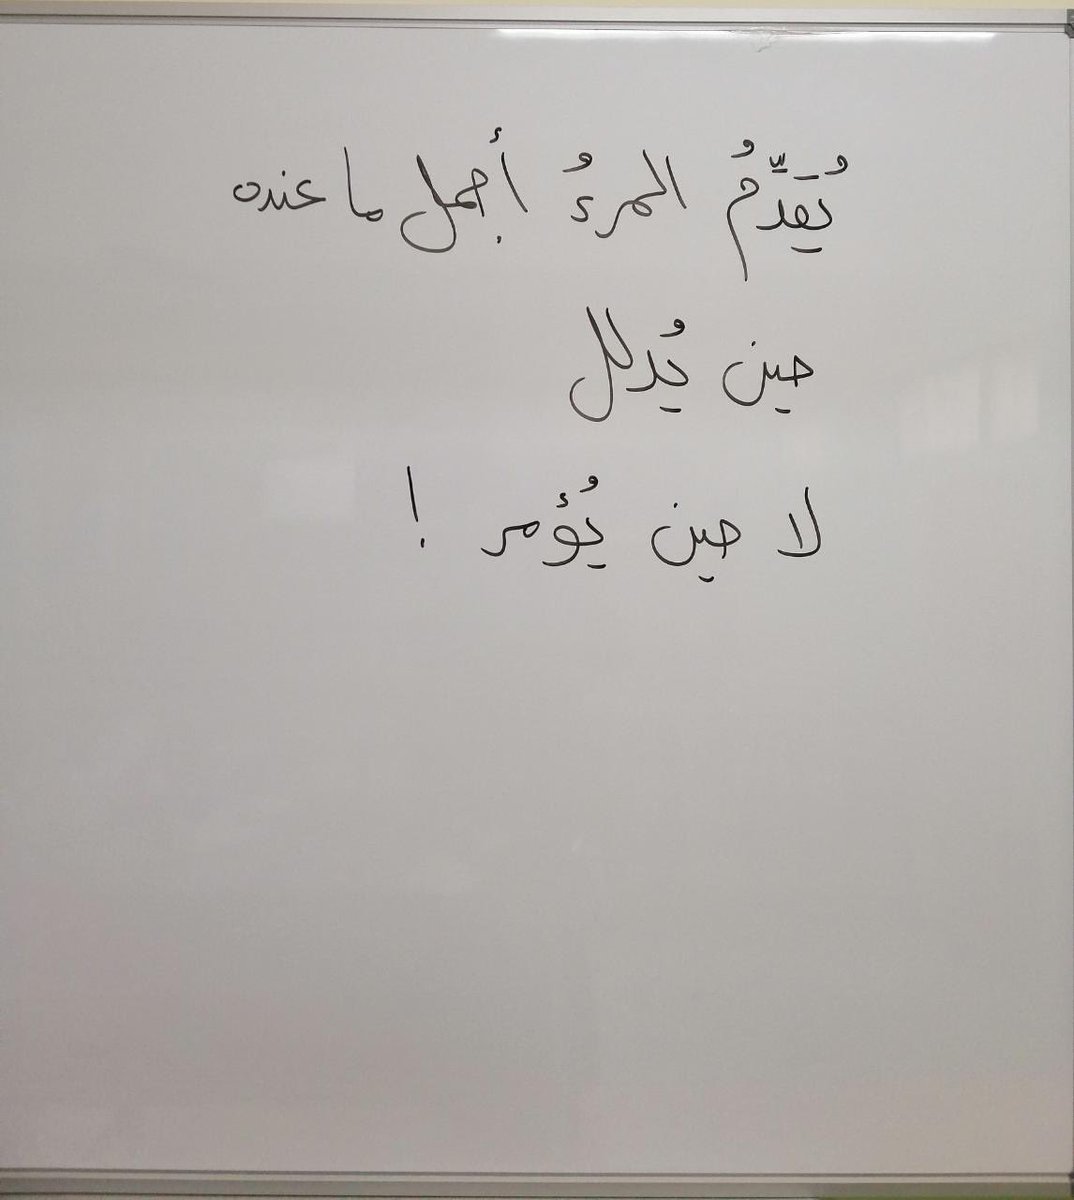 يُقَدِّمُ المرءُ أجمل ما عنده
حين يُدلل
لا حين يُؤمر !